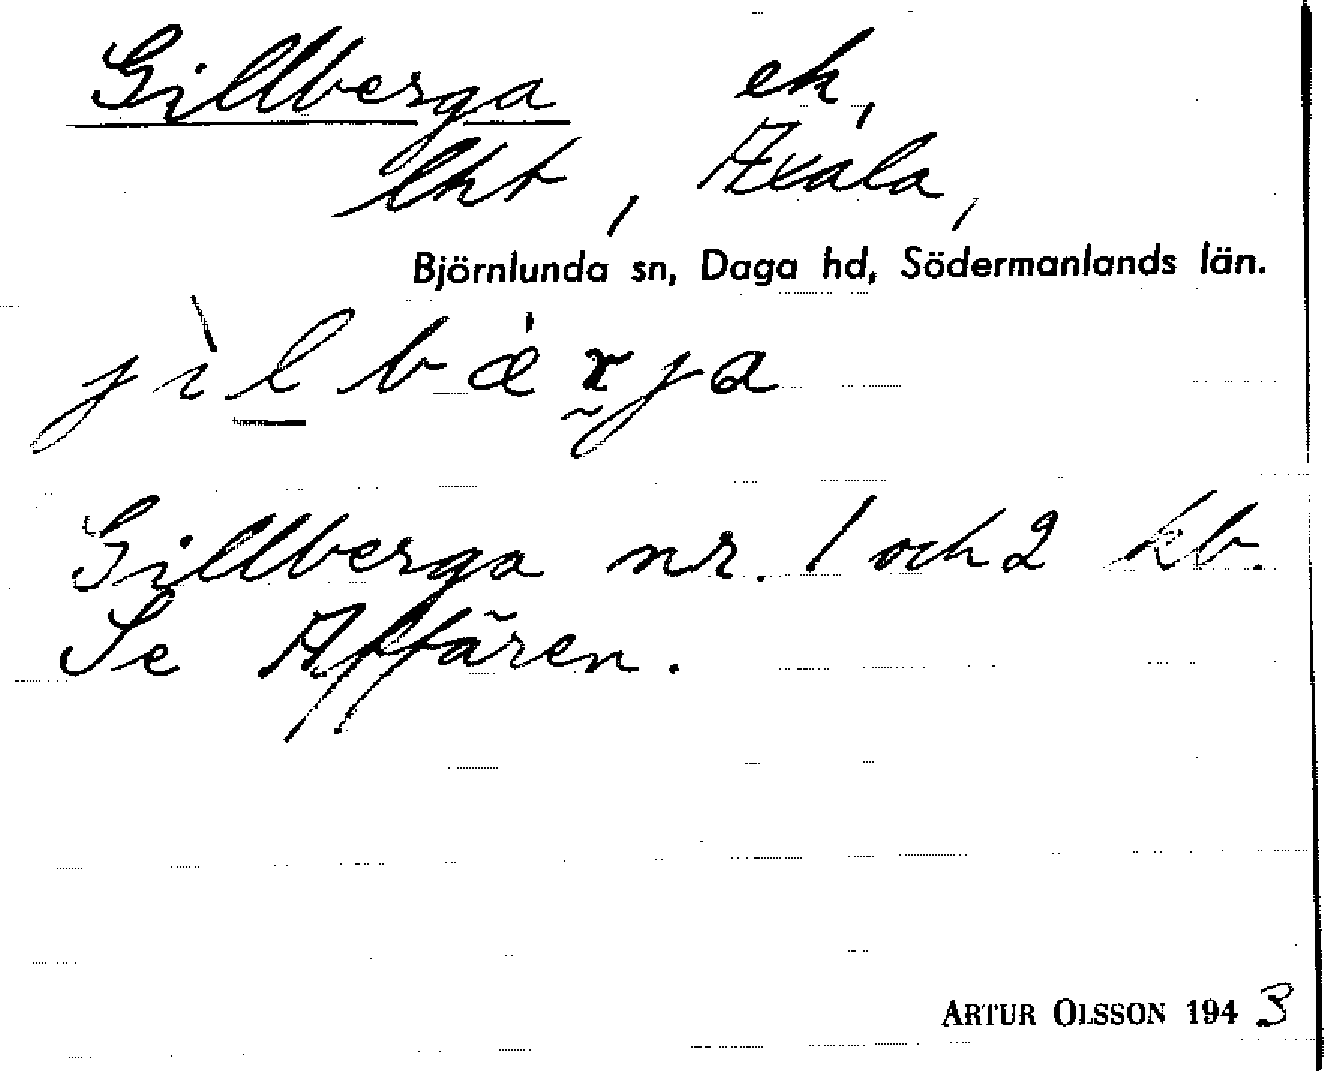 Gillberga ek,
lht, Axala,
Björnlunda sn, Daga hd, Södermanlands län.
jìlbärja
Gillberga nr. 1 och 2 kb.
Se Affären.
ARTUR OLSSON 1943